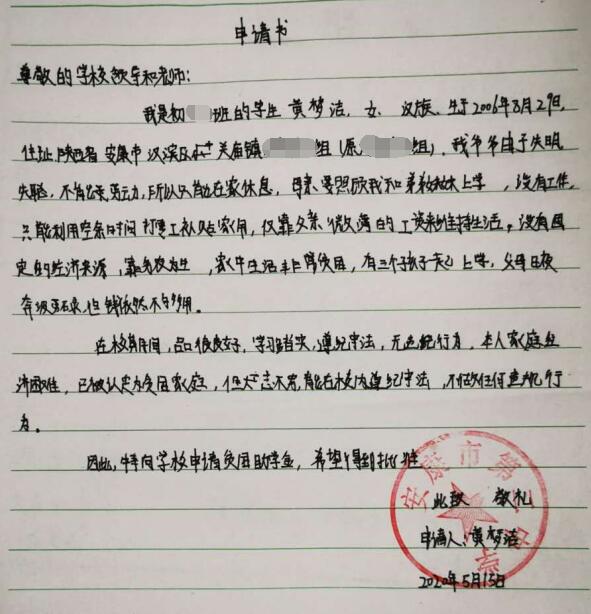 申请书
尊敬的学校领导和老师：
我是初 班的学生黄梦洁，女、汉族、生于2006年8月29日，
住址陕西省安康市汉滨区 关庙镇 组（原 组），我爷爷由于失明
失聪，不能劳动，所以只能在家休息，母亲要照顾我和弟弟妹妹上学，没有工作，
只能利用空余时间打零工补贴家用，仅靠父亲微薄的工资来维持生活。没有固
定的经济来源，靠务农为生，家中生活非常贫困，有三个孩子一起上学，父母日夜
奔波劳碌，但钱依然不够用。
在校期间，品德良好，学习踏实，遵纪守法，无违纪行为，本人家庭经
济困难，已被认定为贫困家庭，但 志不穷，能在校内遵纪守法，不做任何违规行
为。
因此，特向学校申请贫困助学金，希望得到批准
此致 敬礼
申请人：黄梦洁
2020年5月15日
安康市第